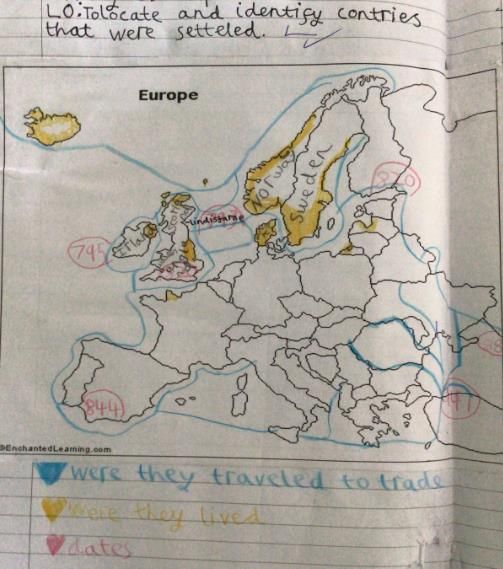 L.O:Tolocate and identify contries
that were setteled.
Europe
Norway
Sweden
820
undisfarne
795
844
©EnchantedLearning.com
were they traveled to trade
were they lived
dates